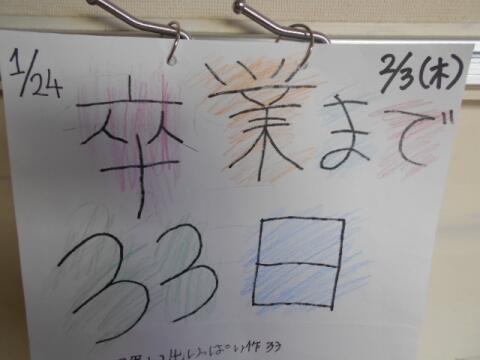 1/24
2/3(木)
卒業まで
33日